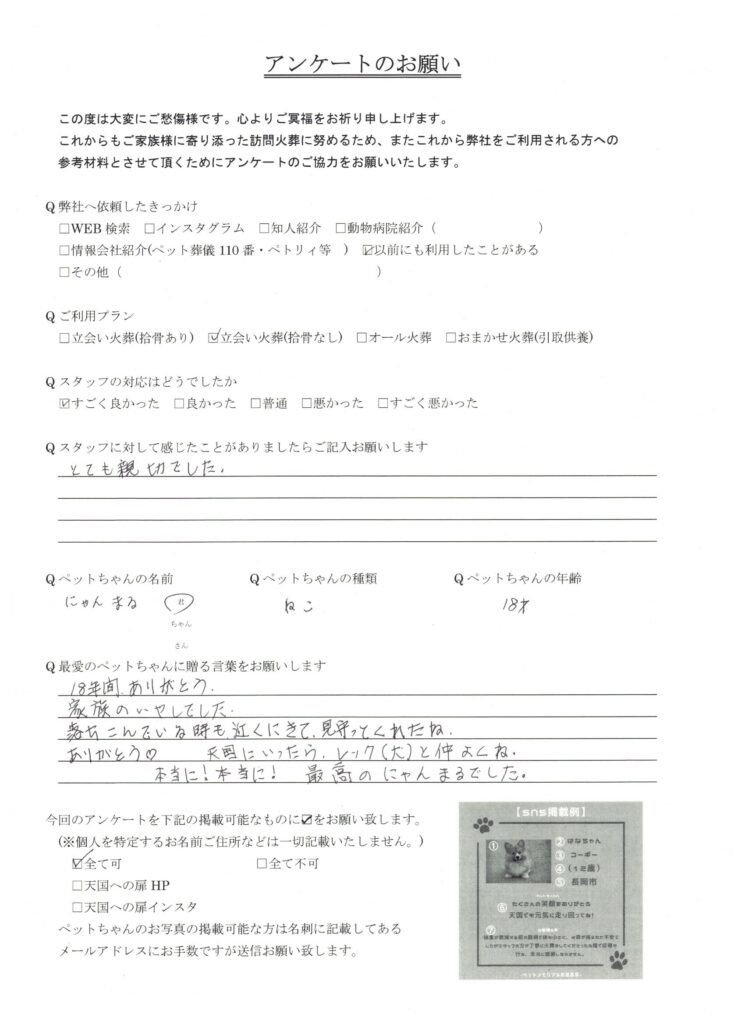 アンケートのお願い
この度は大変にご愁傷様です。心よりご冥福をお祈り申し上げます。
これからもご家族様に寄り添った訪問火葬に努めるため、またこれから弊社をご利用される方への
参考材料とさせて頂くためにアンケートのご協力をお願いいたします。
Q 弊社へ依頼したきっかけ
□WEB 検索 □インスタグラム □知人紹介 □動物病院紹介（ ）
□情報会社紹介(ペット葬儀 110 番・ペトリィ等 ) ☑以前にも利用したことがある
□その他（ ）
Q ご利用プラン
□立会い火葬(拾骨あり) ☑立会い火葬(拾骨なし) □オール火葬 □おまかせ火葬(引取供養)
Q スタッフの対応はどうでしたか
☑すごく良かった □良かった □普通 □悪かった □すごく悪かった
Q スタッフに対して感じたことがありましたらご記入お願いします
とても親切でした。
Q ペットちゃんの名前 Q ペットちゃんの種類 Q ペットちゃんの年齢
にゃんまる 君 ねこ 18才
ちゃん
さん
Q 最愛のペットちゃんに贈る言葉をお願いします
18年間、ありがとう。
家族のいやしでした。
落ちこんでいる時も、近くにきて、見守ってくれたね。
ありがとう♡ 天国にいったら、レック(犬)と仲よくね。
本当に!本当に! 最高のにゃんまるでした。
今回のアンケートを下記の掲載可能なものに☑をお願い致します。
(※個人を特定するお名前ご住所などは一切記載いたしません。)
☑全て可 □全て不可
□天国への扉 HP
□天国への扉インスタ
ペットちゃんのお写真の掲載可能な方は名刺に記載してある
メールアドレスにお手数ですが送信お願い致します。
【sns掲載例】
① ② はなちゃん
③ コーギー
④ (12歳)
⑤ 長岡市
⑥ たくさんの笑顔をありがとう
天国でも元気に走り回ってね!
⑦